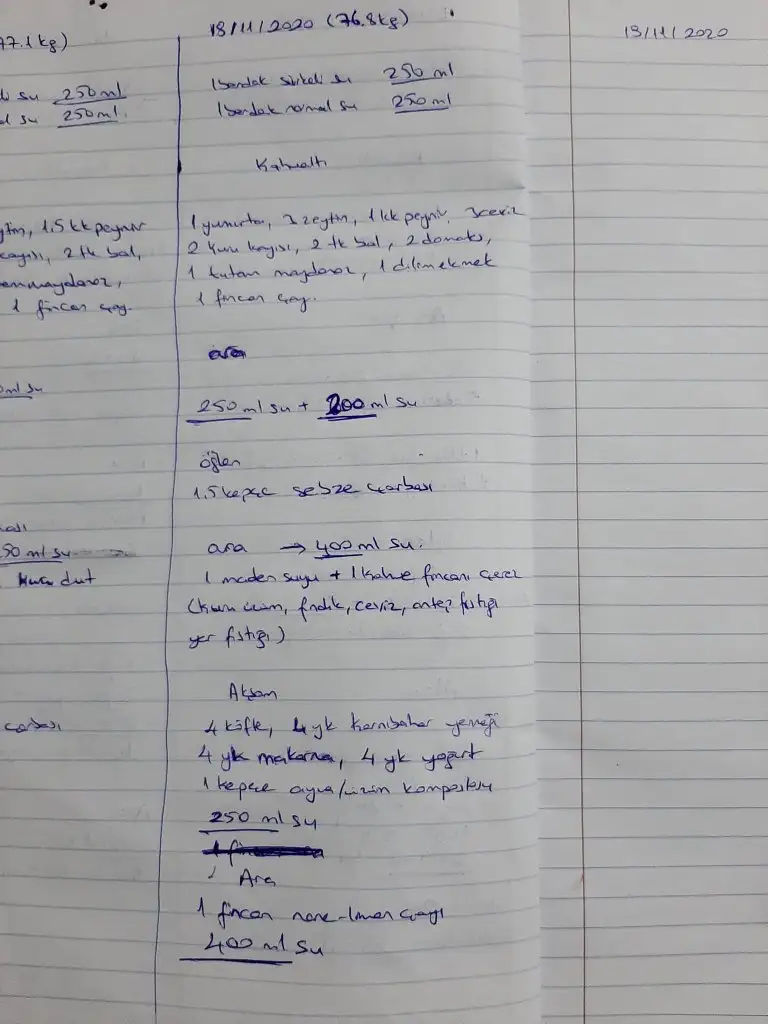 77.1 kg)
su 250ml
su 250ml.
1.5 kk peynir
2 tk bal,
maydanoz,
1 fincan çay.
ml su
50 ml su
kuru dut
çorbası
18/11/2020 (76.8kg)
1 bardak sirkeli su 250 ml
1 bardak normal su 250 ml
Kahvaltı
1 yumurta, 3 zeytin, 1 kk peynir, 3 ceviz
2 kuru kayısı, 2 tk bal, 2 domates,
1 tutam maydanoz, 1 dilim ekmek
1 fincan çay.
ara
250 ml su + 200 ml su
öğlen
1.5 kepçe sebze çorbası
ara → 400 ml su.
1 maden suyu + 1 kahve fincanı çerez
(kuru üzüm, fındık, ceviz, antep fıstığı
yer fıstığı)
Akşam
4 köfte, 4 yk karnıbahar yemeği
4 yk makarna, 4 yk yoğurt
1 kepçe ayva/üzüm kompostosu
250 ml su
Ara
1 fincan nane-limon çayı
400 ml su
19/11/2020